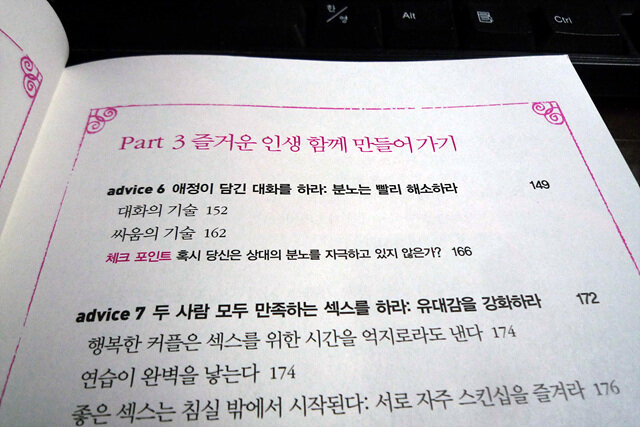 한/영
Alt
Ctrl
Part 3 즐거운 인생 함께 만들어 가기
advice 6 애정이 담긴 대화를 하라: 분노는 빨리 해소하라 149
대화의 기술 152
싸움의 기술 162
체크 포인트 혹시 당신은 상대의 분노를 자극하고 있지 않은가? 166
advice 7 두 사람 모두 만족하는 섹스를 하라: 유대감을 강화하라 172
행복한 커플은 섹스를 위한 시간을 억지로라도 낸다 174
연습이 완벽을 낳는다 174
좋은 섹스는 침실 밖에서 시작된다: 서로 자주 스킨십을 즐겨라 176